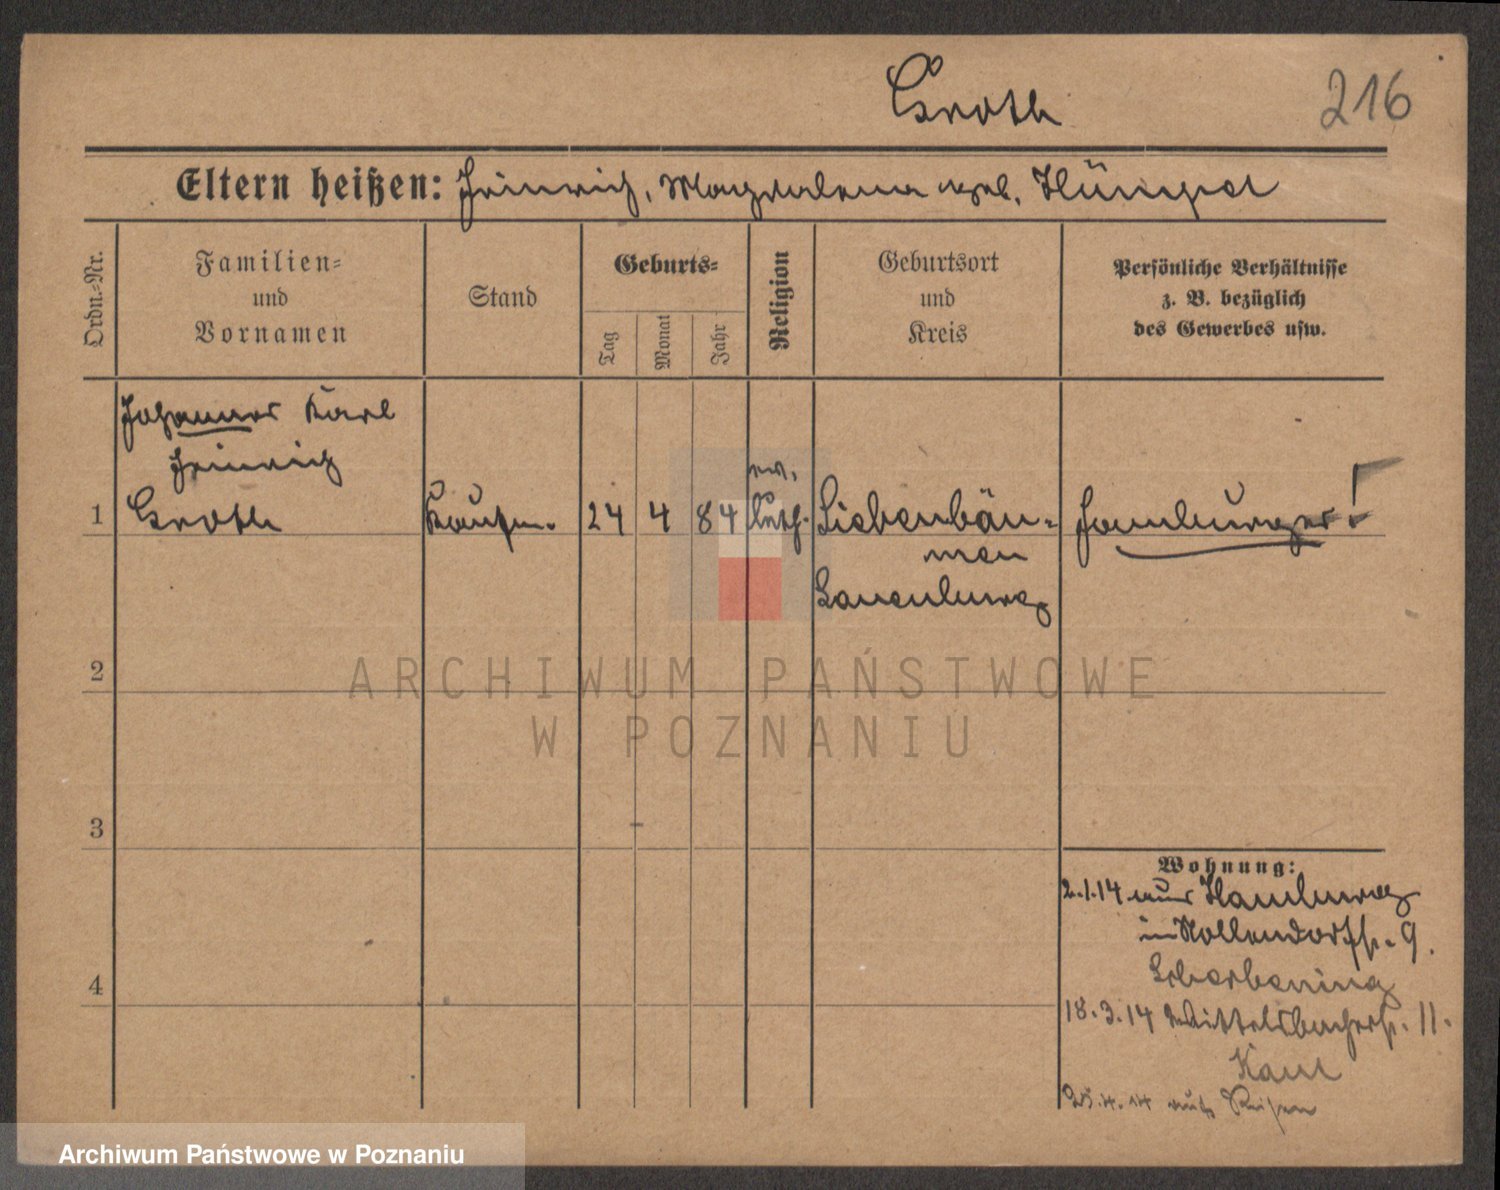 Groth
216
Eltern heißen: Heinrich, Magdalena geb. Hümpel
Ordn.-Nr.
Familien-
und
Vornamen
Stand
Geburts-
Tag
Monat
Jahr
Religion
Geburtsort
und
Kreis
Persönliche Verhältnisse
z. B. bezüglich
des Gewerbes usw.
Johannes Karl
Heinrich
1 Groth
Kaufm.
24 4 84
ev.
luth.
Siebenbäu-
men
Lauenburg
Hamburger!
2
3
4
Wohnung:
2.1.14 aus Hamburg
in Nollendorfstr. 9.
18.3.14 Wittelsbacherstr. 11.
25.4.14 auf Reisen
ARCHIWUM PAŃSTWOWE
W POZNANIU
Archiwum Państwowe w Poznaniu